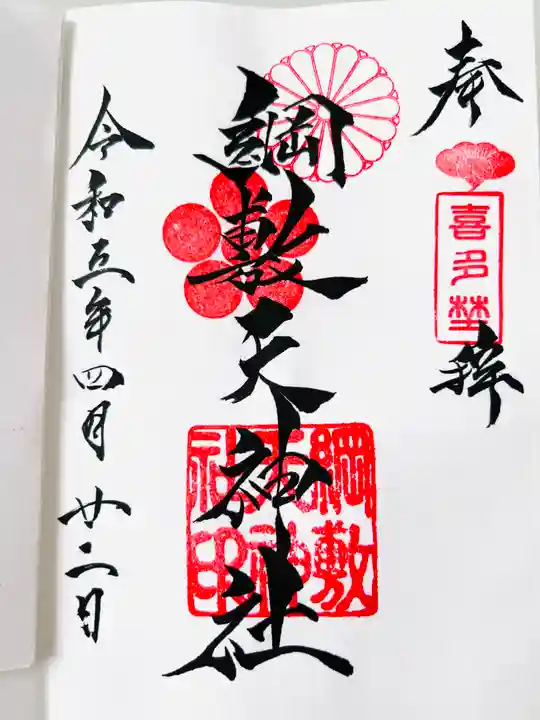 奉拝
喜多埜
綱敷天神社
綱敷天神社印
令和五年四月廿二日